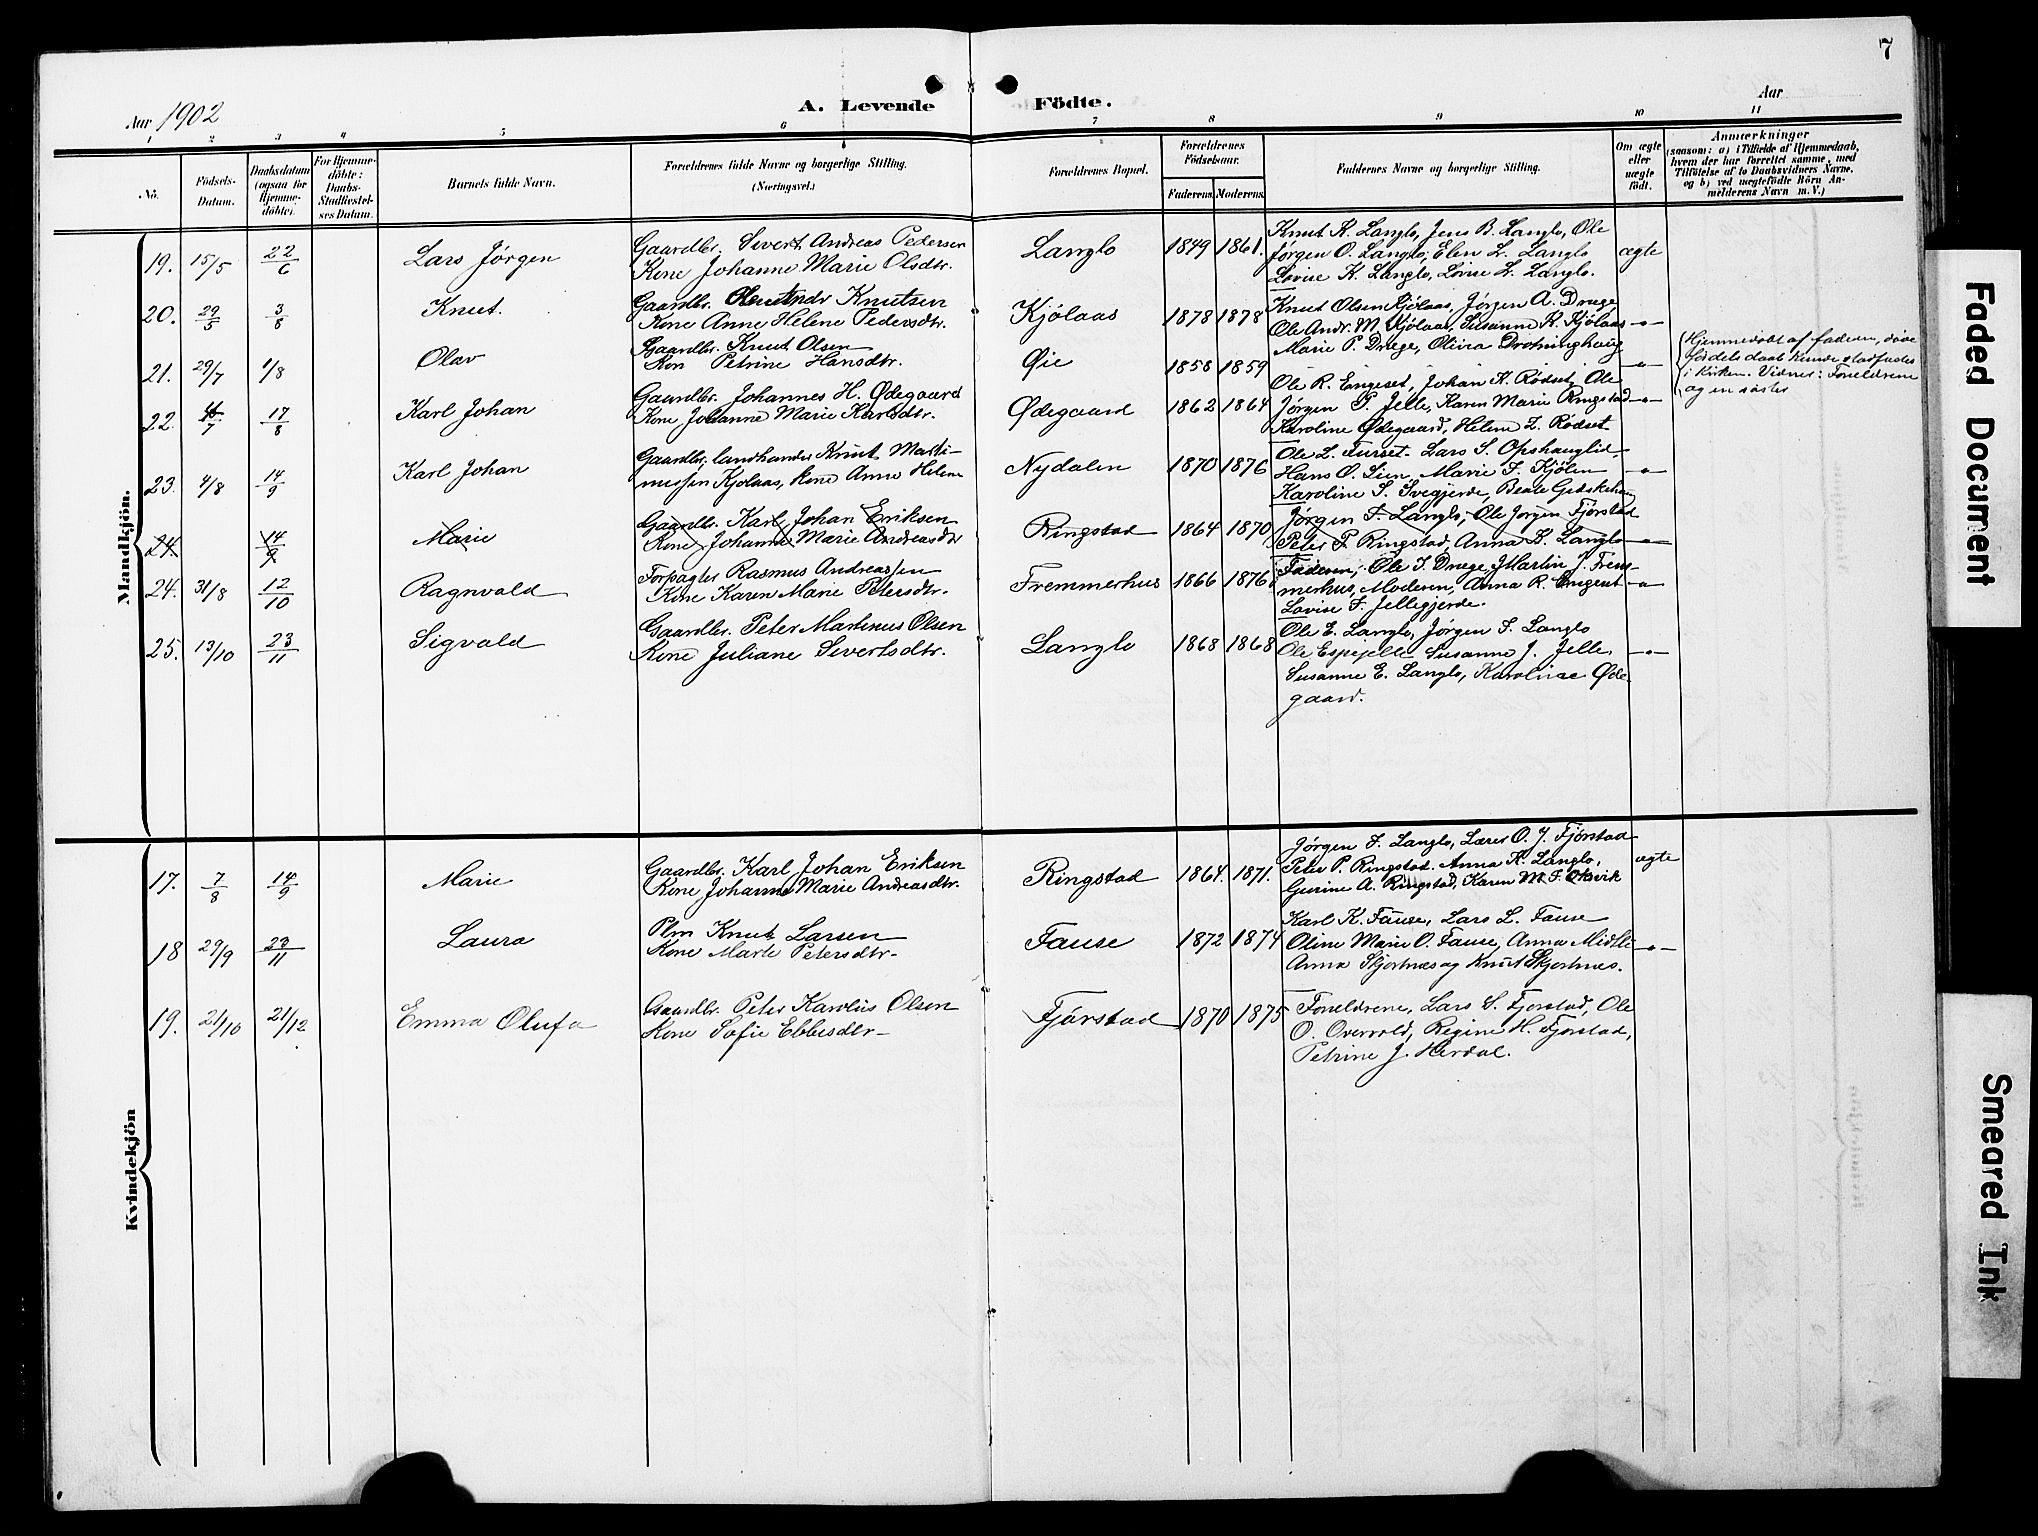 7
Aar 1902
A. Levende Födte.
Aar
1 2 3 4 5 6 7 8 9 10 11
No.
Födsels-Datum.
Daabsdatum (ogsaa for Hjemmedöbte).
For Hjemmedöbte: Daabs-Stadfæstelses Datum.
Barnets fulde Navn.
Forældrenes fulde Navne og borgerlige Stilling.
(Næringsvei.)
Forældrenes Bopæl.
Forældrenes Födselsaar.
Faderens. Moderens.
Faddernes Navne og borgerlige Stilling.
Om ægte eller uægte födt.
Anmærkninger
(saasom: a) i Tilfælde af Hjemmedaab, hvem der har forrettet samme, med Tilföielse af to Daabsvidners Navne, og b) ved uægtefödte Börn Anmelderens Navn m. V.)
Mandkjön.
19. 15/5 22/6 Lars Jørgen
Gaardbr. Sivert Andreas Pedersen
Kone Johanne Marie Olsdtr.
Langlo 1849 1861.
Knut K. Langlo, Jens B. Langlo, Ole
Jørgen O. Langlo, Elen L. Langlo
Lovise K. Langlo, Lovise L. Langlo.
ægte
20. 29/5 3/8 Knut.
Gaardbr. Knutsen
Kone Anne Helene Pedersdtr.
Kjölaas 1878 1878
Knut Olsen Kjölaas, Jörgen A. Druge
Ole Andr. M. Kjölaas, Susanne K. Kjölaas
Marie P. Druge, Olivia Drotninghaug
-"-
21. 29/7 1/8 Olav
Gaardbr. Knut Olsen
Kon Petrine Hansdtr.
Øie 1858 1859
-"-
Hjemmedöbt af faderen, døde
førdets daab kunde stadfæstes
i kirken. Vidner: Forældrene
og en søster
22. 17/8 Karl Johan
Gaardbr. Johannes H. Ødegaard
Kone Johanne Marie Karlsdtr.
Ødegaard 1862 1864
Ole R. Emgeset, Johan K. Rødset, Ole
Jörgen P. Jelle, Karen Marie Ringstad
Karoline Ødegaard, Helene Z. Rødset
-"-
23. 4/8 14/9 Karl Johan
Gaardbr, landhandler Knut Marti-
nussen Kjolaas, kone Anne Helene
Nydalen 1870 1876
Ole L. Furset. Lars S. Opshauglid
Hans O. Lien. Marie I. Kjölen
Karoline S. Svegjerde, Beate Gidskehaug
-"-
24. 14/9 Marie
Gaardbr. Karl Johan Eriksen
Kone Johanne Marie Andreasdtr
Ringstad 1864 1870
Jörgen F. Langlo, Ole Jörgen Fjörstad
Peter P. Ringstad, Anna K. Langlo
24. 31/8 12/10 Ragnvald
Forpagter Rasmus Andreassen
Kone Karen Marie Petersdtr.
Fremmerhus 1866 1876
Faderen, Ole I. Druge, Martin J. Frem-
merhus, Moderen, Anna R. Emgeset
Lovise F. Jellegjerde.
-"-
25. 13/10 23/11 Sigvald
Gaardbr. Peter Martinus Olsen
Kone Juliane Sivertsdtr.
Langlo 1868 1868
Ole E. Langlo, Jörgen F. Langlo
Ole Espejelle Susanne J. Jelle,
Susanne E. Langlo, Karoline Øde-
gaard.
-"-
Kvindekjön
17. 7/8 14/9 Marie
Gaardbr. Karl Johan Eriksen
Kone Johanne Marie Andreasdtr.
Ringstad 1864. 1871.
Jørgen F. Langlo, Lærer O. J. Fjörstad
Peter P. Ringstad. Anna K. Langlo,
Gurine A. Ringstad, Karen M. F. Oksvik
ægte
18 29/9 23/11 Laura
Plm Knut Larsen
Kone Marte Petersdtr-
Fause 1872 1874
Karl K. Fause, Lars L. Fause
Oline Marie O. Fause, Anna Midtli
Anna Skjortnes og Knut Skjortnes.
-"-
19. 21/10 21/12 Emma Olufa
Gaardbr. Peter Karolius Olsen
Kone Sofie Ebbesdtr-
Fjörstad 1870 1875
Forældrene, Lars S. Fjorstad, Ole
O. Overvold, Regine H. Fjorstad,
Petrine J. Herdal.
Faded Document
Smeared Ink